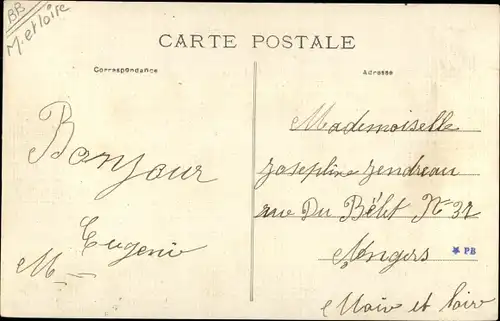 BB
M. et loire
CARTE POSTALE
Correspondance
Adresse
Bonjour
Eugenie
M
Mademoiselle
Josephine Jendreau
rue Du Bélet N=32
Angers
★ PB
Maine et Loire